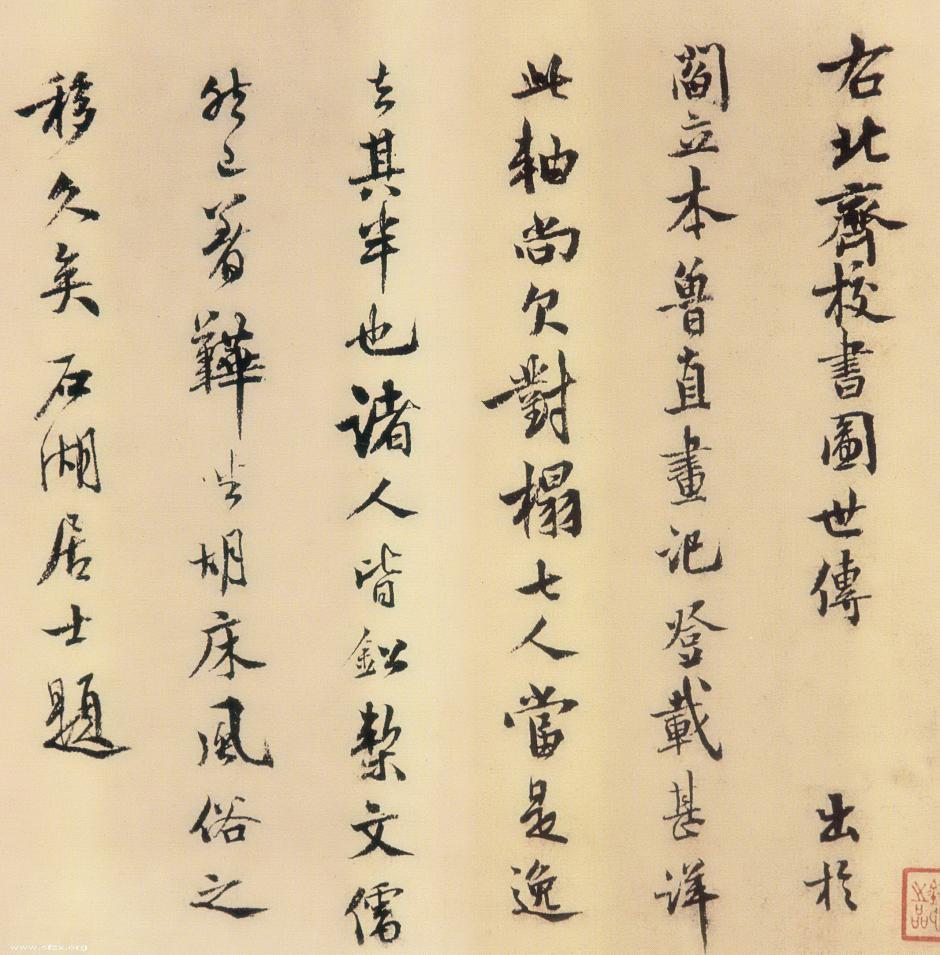 右北齊校書圖世傳 出於
閻立本魯直畫記登載甚詳
此軸尚欠對榻七人當是逸
去其半也諸人皆鉛槧文儒
然已著鞾坐胡床風俗之
移久矣石湖居士題